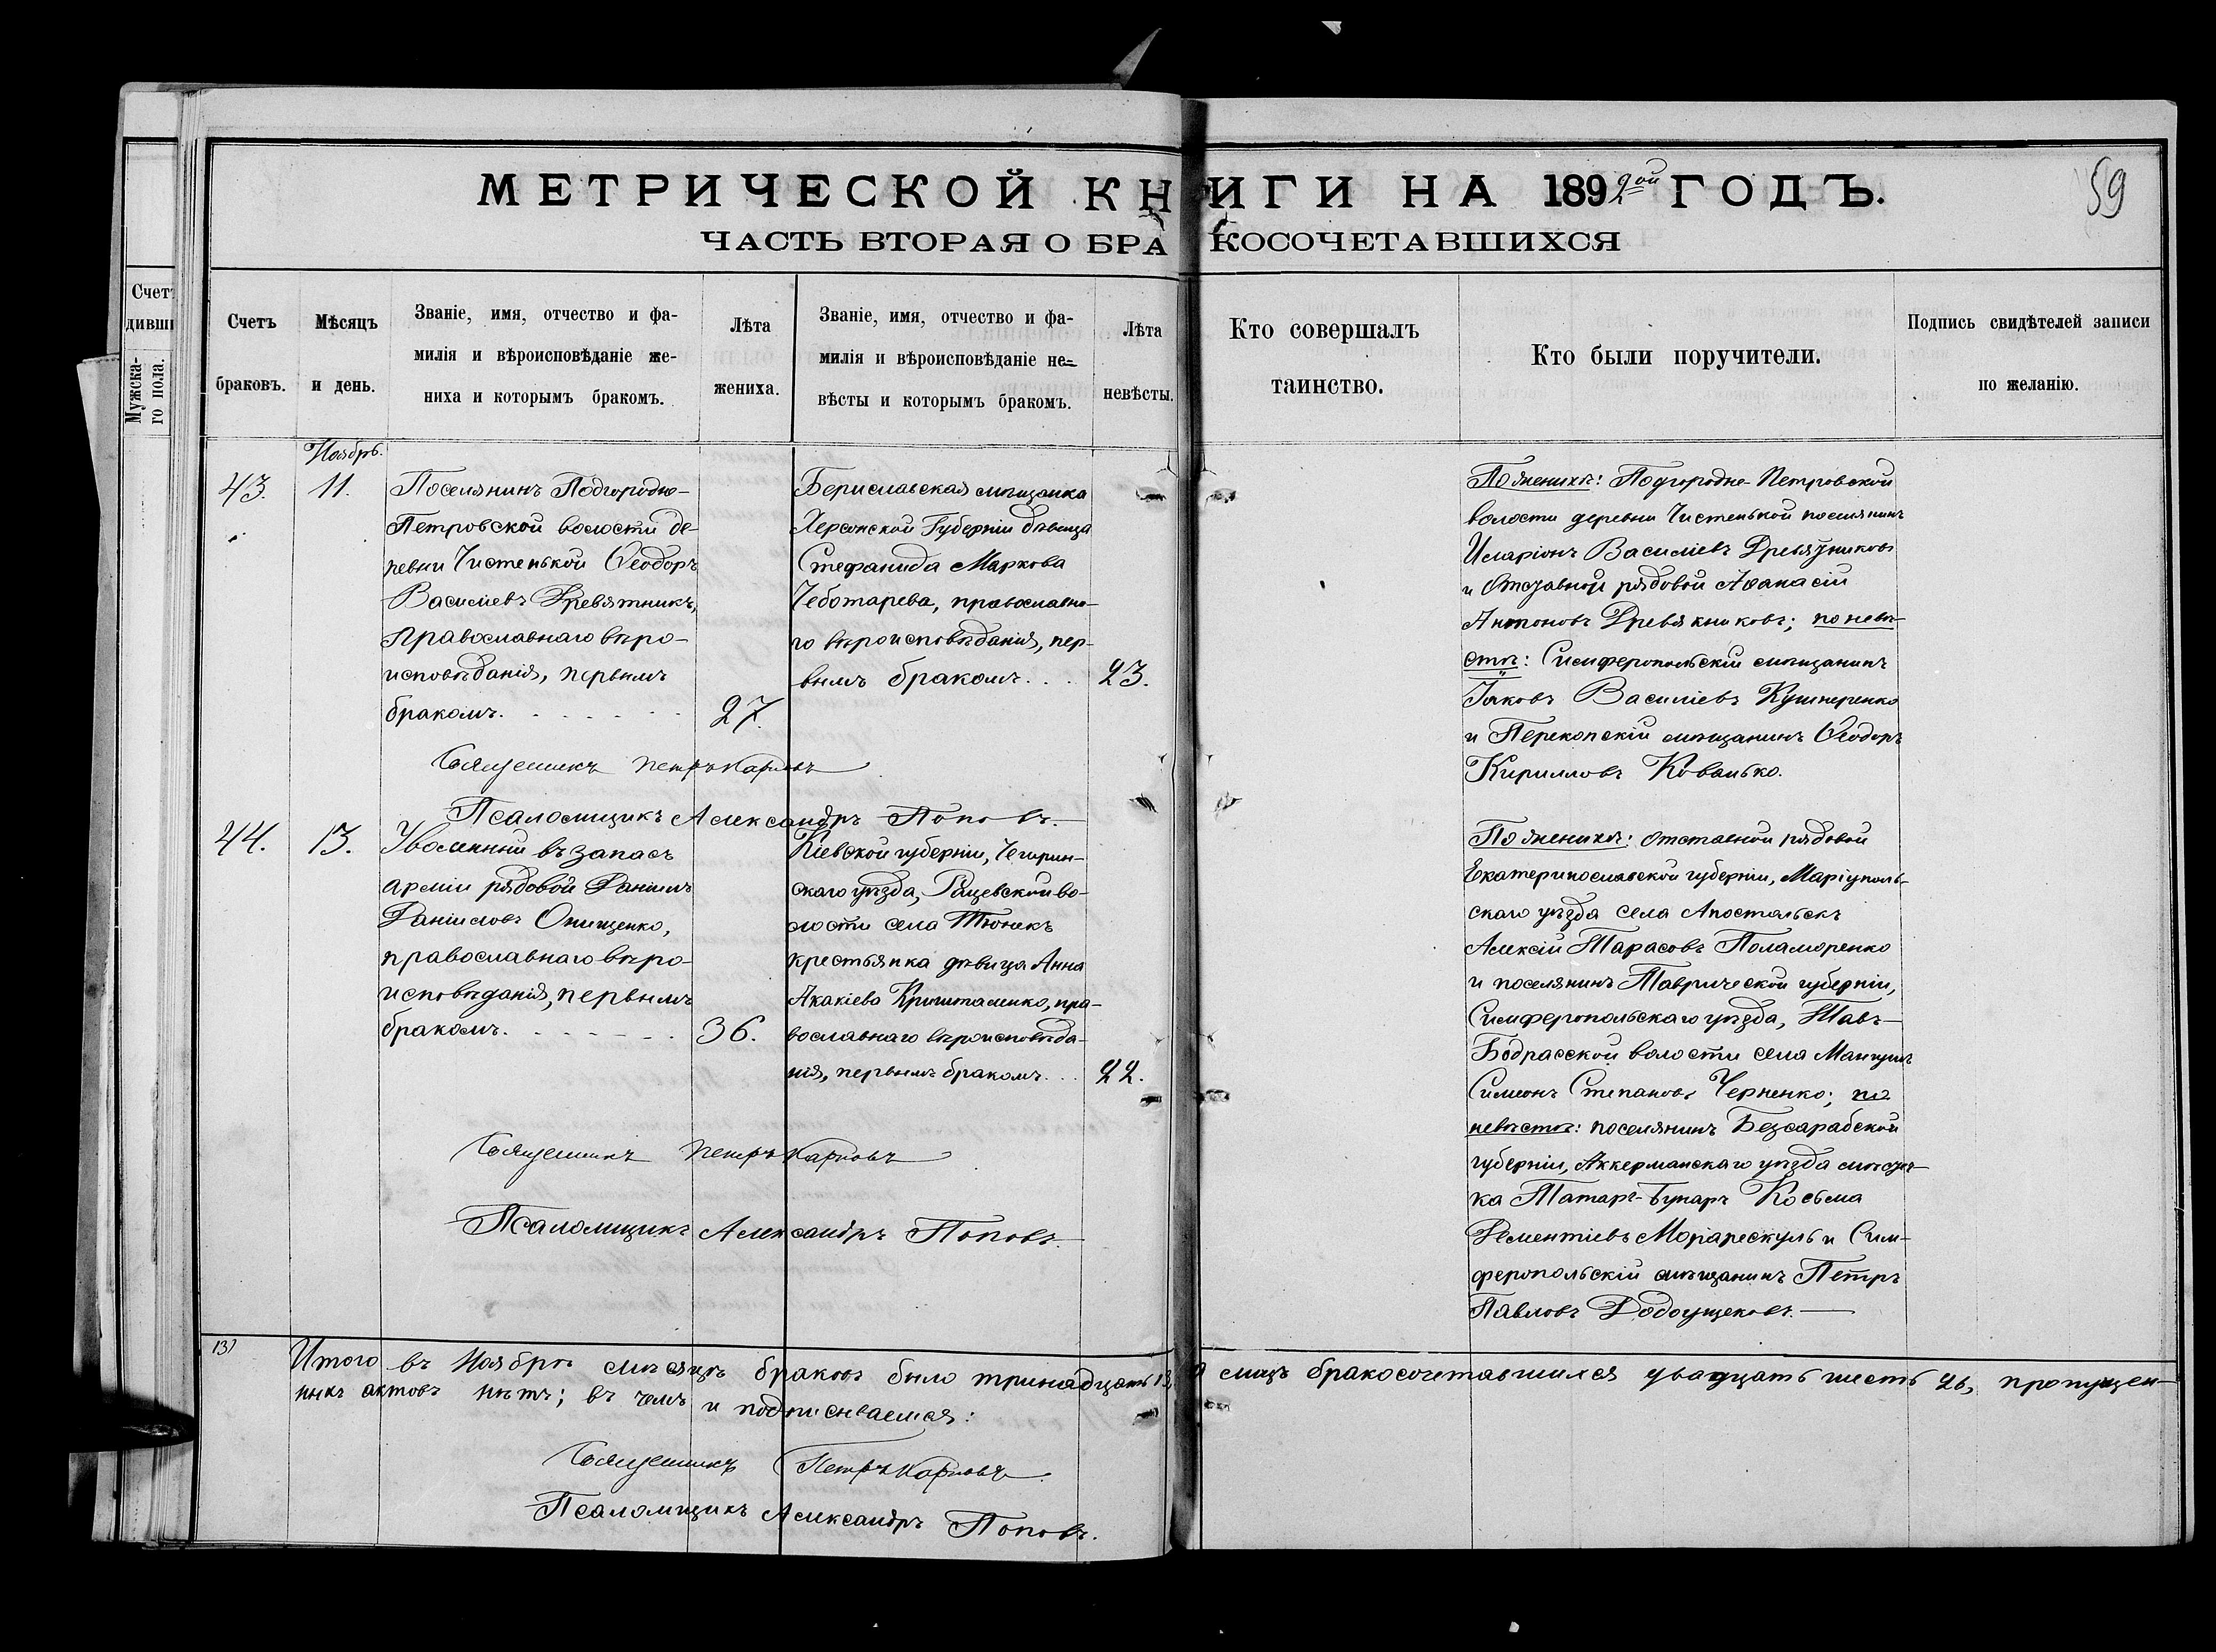 МЕТРИЧЕСКОЙ КНИГИ НА 1892ой ГОДЪ.
59
ЧАСТЬ ВТОРАЯ О БРАКОСОЧЕТАВШИХСЯ
Счетъ браковъ.
Мѣсяцъ и день.
Званіе, имя, отчество и фа-
милія и вѣроисповѣданіе же-
ниха и которымъ бракомъ.
Лѣта
жениха.
Званіе, имя, отчество и фа-
милія и вѣроисповѣданіе не=
вѣсты и которымъ бракомъ.
Лѣта
невѣсты.
Кто совершалъ
таинство.
Кто были поручители.
Подпись свидѣтелей записи
по желанію.
Счет
дивши
Мужска-
го пола.
Ноябрь.
43.
11.
Поселянинъ Подгородне-
Петровской волости де-
ревни Чистенькой Ѳеодоръ
Василіевъ Древятникъ,
православнаго вѣро-
исповѣданія, первымъ
бракомъ.
27.
Бериславская мѣщанка
Херсонской Губерніи дѣвица
Стефанида Маркова
Чеботарева, православна-
го вѣроисповѣданія, пер-
вымъ бракомъ...
23.
По женихѣ: Подгородне-Петровской
волости деревни Чистенькой поселянинъ
Иларіонъ Василіевъ Древятниковъ
и Отставной рядовой Аѳанасій
Антоновъ Древякниковъ; по невѣ-
стѣ: Симферопольскій мѣщанинъ
Іаковъ Василіевъ Кушнеренко
и Перекопскій мѣщанинъ Ѳеодоръ
Кирилловъ Ковалько.
Священникъ Петръ Карповъ
Псаломщикъ Александръ Поповъ.
44.
13.
Уволенный въ запасъ
арміи рядовой Даніилъ
Даніиловъ Онищенко,
православнаго вѣро-
исповѣданія, первымъ
бракомъ.
36.
Кіевской губерніи, Чигирин-
скаго уѣзда, Рацевской во-
лости села Тюнекъ
крестьянка дѣвица Анна
Акакіева Кришталенко, пра-
вославнаго вѣроисповѣда-
нія, первымъ бракомъ...
22.
По женихѣ: отставной рядовой
Екатеринославской губерніи, Маріуполь-
скаго уѣзда села Апостольскъ
Алексій Тарасовъ Поламоренко
и поселянинъ Таврической губерніи,
Симферопольскаго уѣзда, Тавъ-
Бодракской волости села Мангушъ
Симеонъ Степановъ Черненко; по
невѣстѣ: поселянинъ Безсарабской
губерніи, Аккерманскаго уѣзда мѣстеч-
ка Татаръ-Бунаръ Косьма
Дементіевъ Морарескулъ и Сим-
феропольскій мѣщанинъ Петръ
Павловъ
Священникъ Петръ Карповъ
Псаломщикъ Александръ Поповъ.
13)
Итого въ Ноябрѣ мѣсяцѣ браковъ было тринадцать 13, а лицъ бракосочетавшихся двадцать шесть 26, пропущен-
ныхъ актовъ нѣтъ; въ чемъ и подписываемся:
Священникъ Петръ Карповъ
Псаломщикъ Александръ Поповъ.